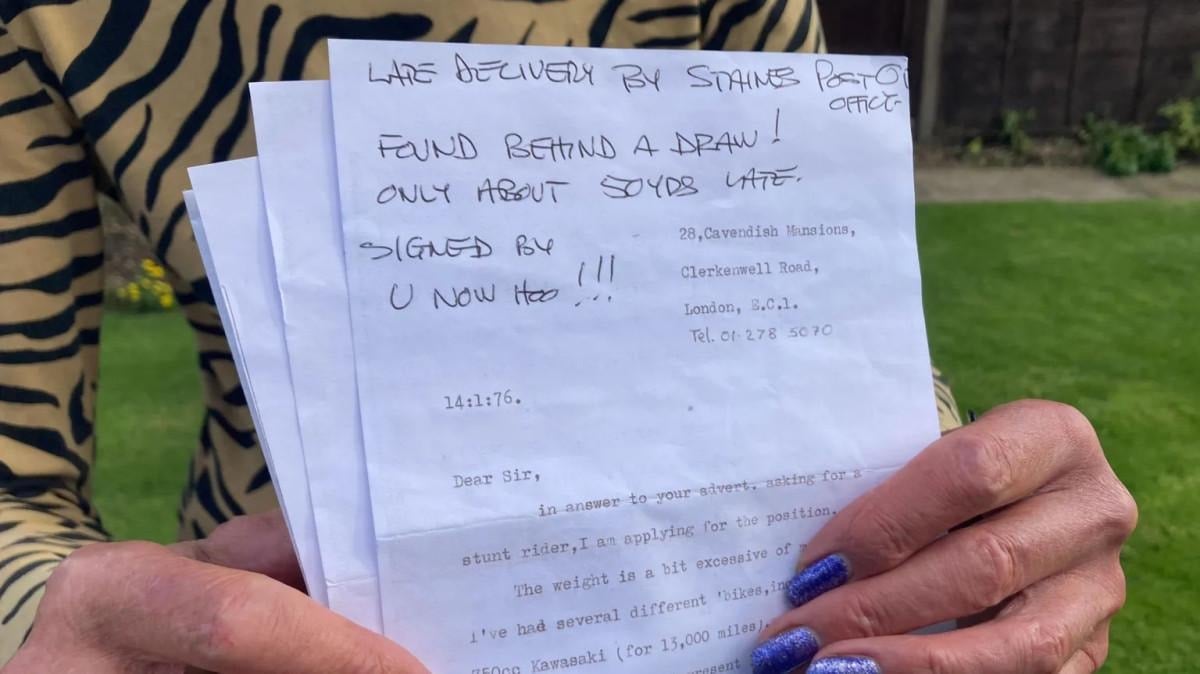 LATE DELIVERY BY STAINES POST
OFFICE
FOUND BEHIND A DRAW!
ONLY ABOUT 50YDS LATE.
SIGNED BY
U NOW HOO !!!
28,Cavendish Mansions,
Clerkenwell Road,
London, E.C.1.
Tel. 01-278 5070
14:1:76.
Dear Sir,
in answer to your advert. asking for a
stunt rider,I am applying for the position.
The weight is a bit excessive of
I've had several different 'bikes,
750cc Kawasaki (for 13,000 miles)